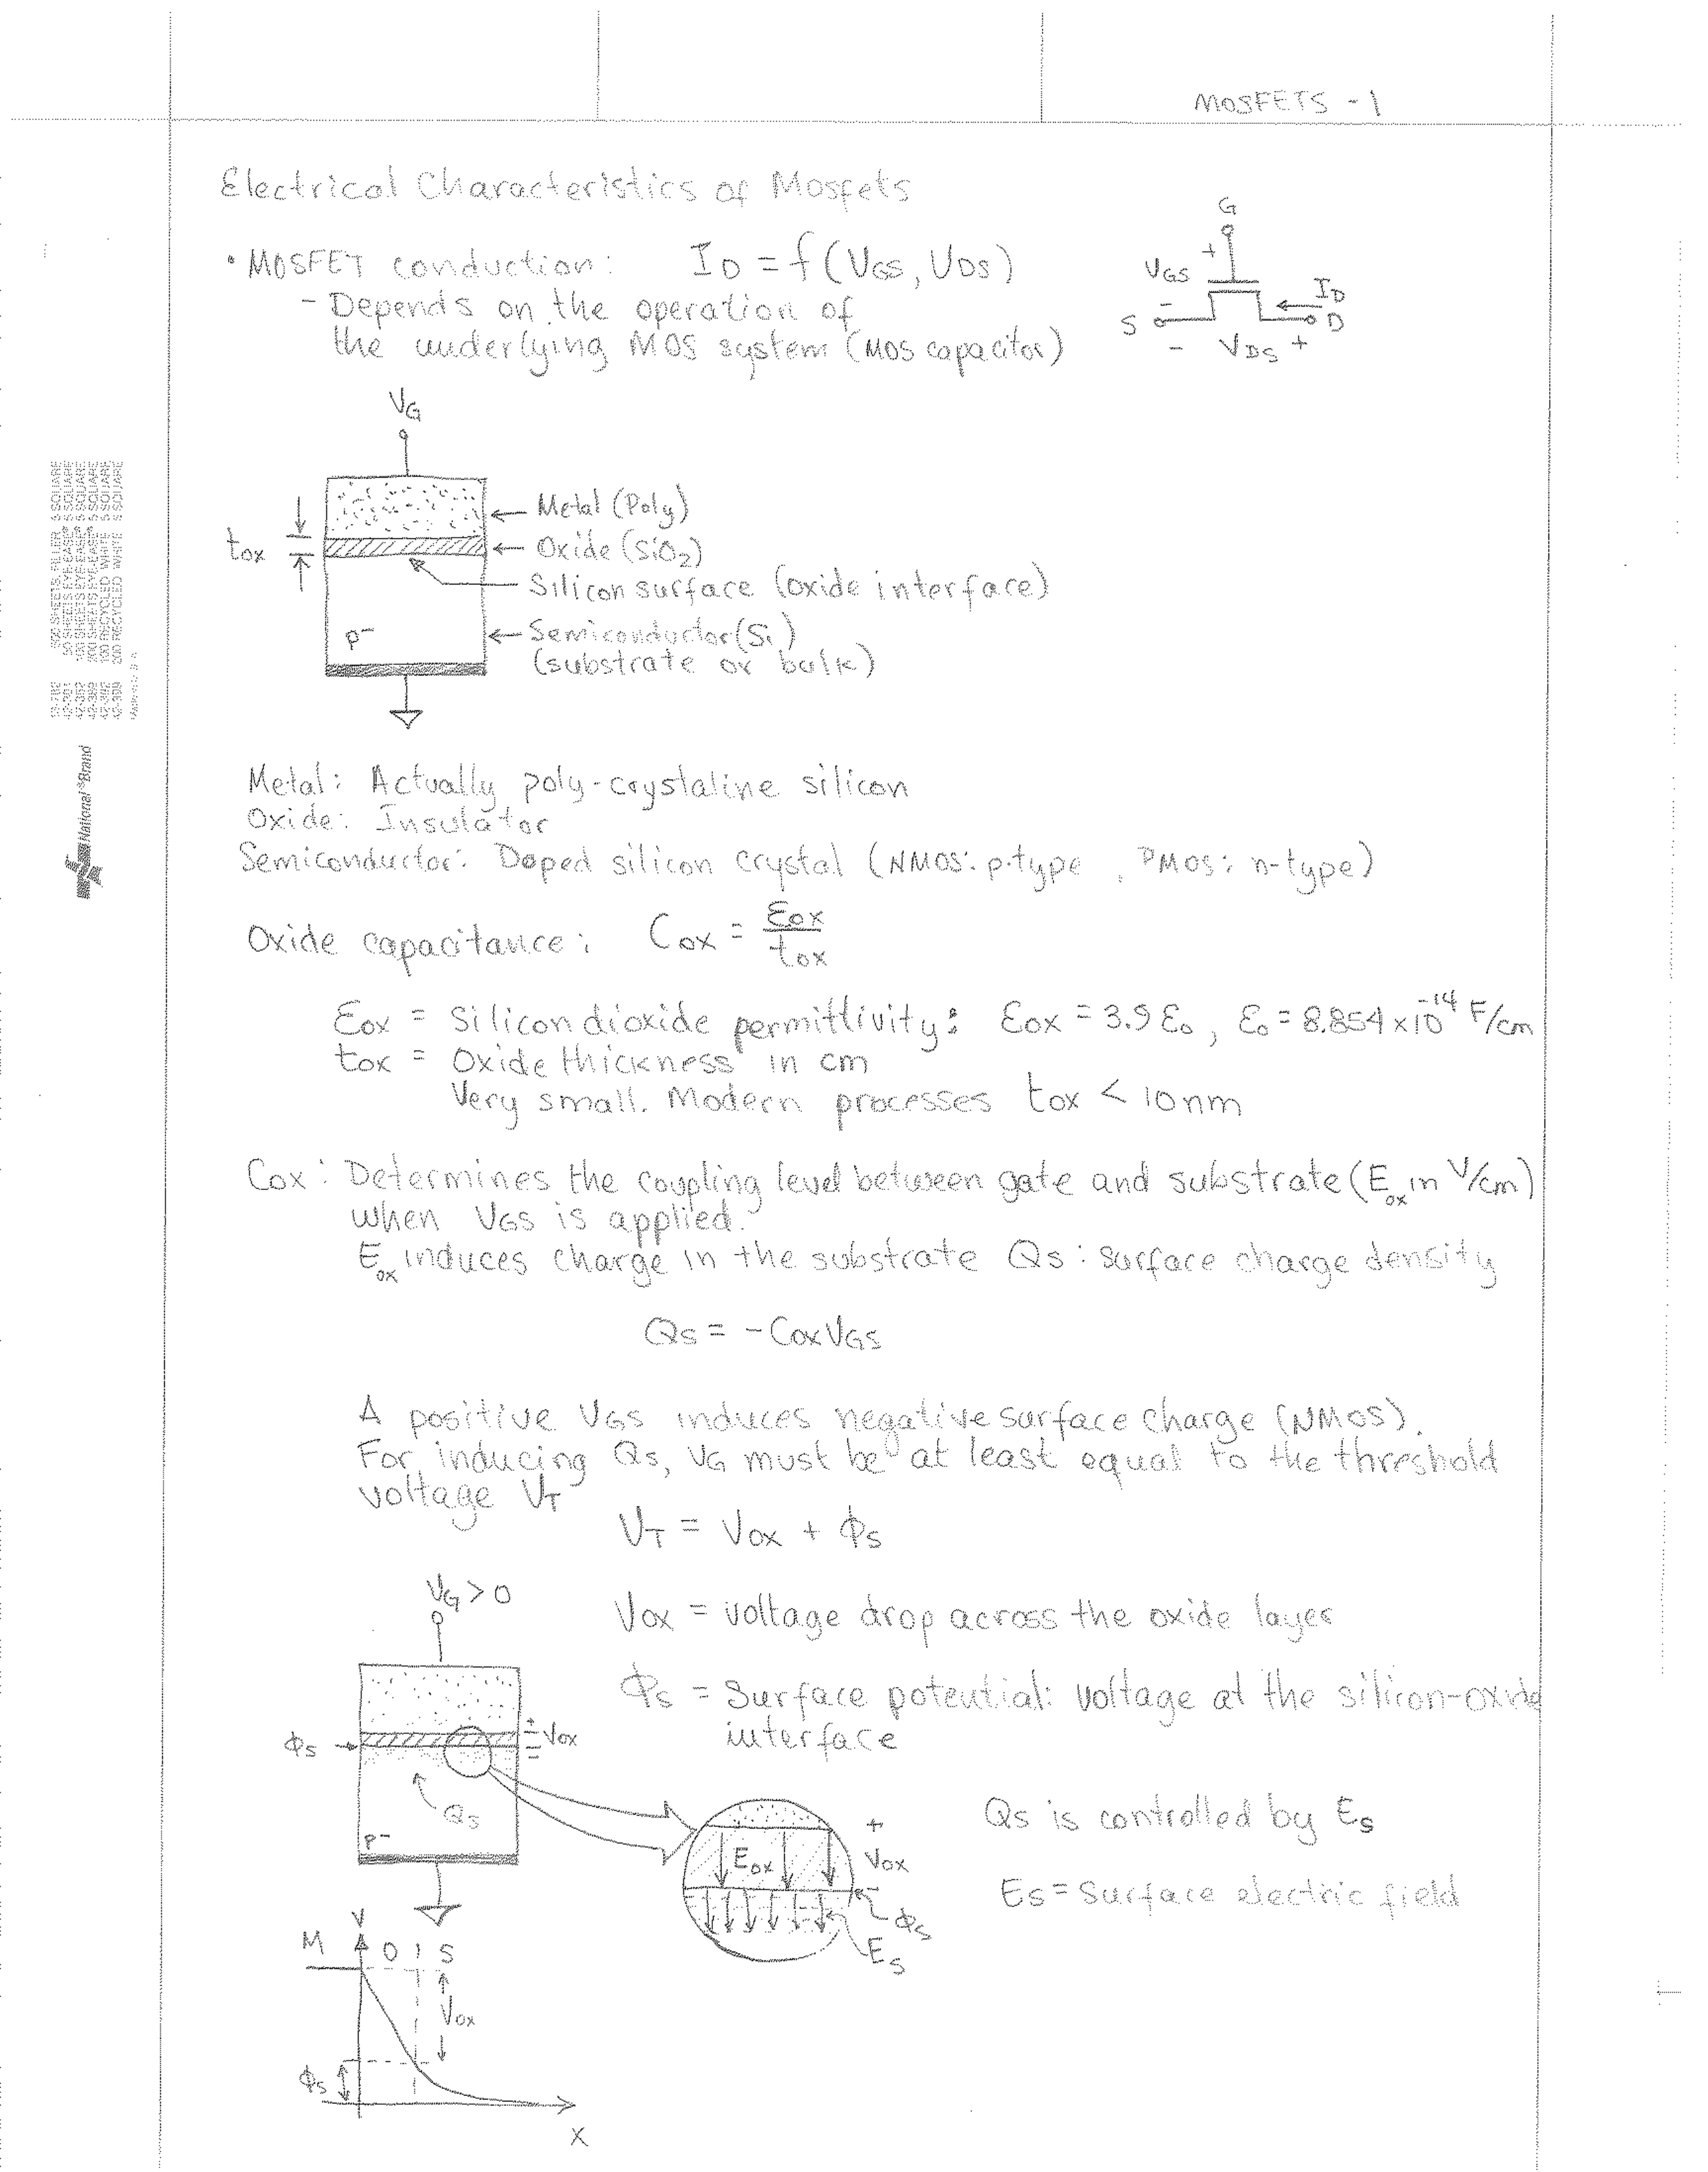 MOSFETS - 1
Electrical Characteristics of Mosfets
• MOSFET conduction: ID = f(VGS, VDS)
- Depends on the operation of
the underlying MOS system (MOS capacitor)
G
+
VGS
-
ID
S
D
- VDS +
VG
tox
Metal (Poly)
Oxide (SiO2)
Silicon surface (oxide interface)
p-
Semiconductor (Si)
(substrate or bulk)
National®Brand
Metal: Actually poly-crystaline silicon
Oxide: Insulator
Semiconductor: Doped silicon crystal (NMOS: p-type, PMOS: n-type)
Oxide capacitance: Cox = εox / tox
εox = Silicon dioxide permittivity: εox = 3.9 ε0, ε0 = 8.854 x 10^-14 F/cm
tox = Oxide thickness in cm
Very small. Modern processes tox < 10nm
Cox: Determines the coupling level between gate and substrate (Eox in V/cm)
when VGS is applied.
Eox induces charge in the substrate Qs: surface charge density
Qs = -CoxVGS
A positive VGS induces negative surface charge (NMOS).
For inducing Qs, VG must be at least equal to the threshold
voltage VT
VT = Vox + ΦS
VG > 0
Vox = voltage drop across the oxide layer
ΦS = Surface potential: voltage at the silicon-oxide
interface
ΦS
+
Vox
-
Qs
p-
Qs is controlled by Es
+
Eox
Vox
-
ΦS
Es
Es = Surface electric field
V
M O S
Vox
ΦS
X